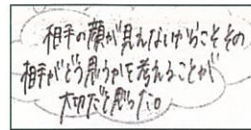 相手の顔が見えないからこそその
相手がどう思うかを考えることが
大切だと思った。